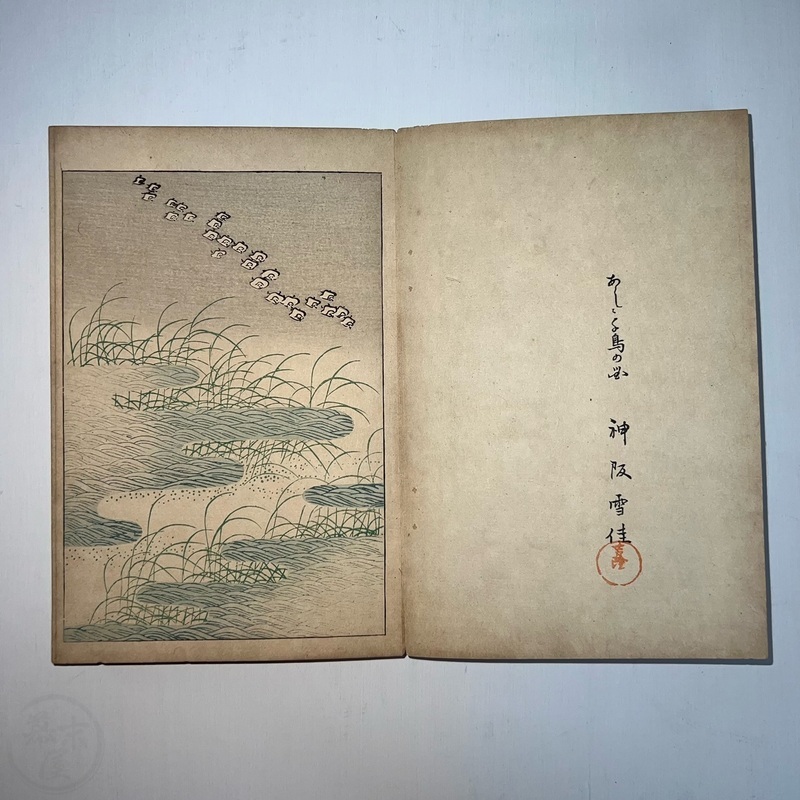 あしに千鳥の図
神阪雪佳